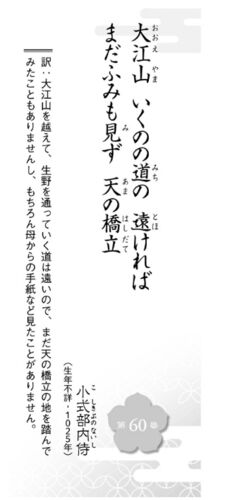 大江山 いくのの道の 遠ければ
まだふみも見ず 天の橋立
訳：大江山を越えて、生野を通っていく道は遠いので、まだ天の橋立の地を踏んで
みたこともありませんし、もちろん母からの手紙など見たことがありません。
小式部内侍
（生年不詳・1025年）
第60番
おおえ やま みち とほ
み あま はしだて
こ しきぶのないし